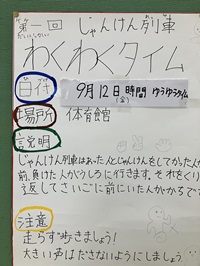 第一回 じゃんけん列車
だいいっかい
わくわくタイム
日付 9月12日(金) 時間 ゆうゆうタイム
場所 体育館
説明
じゃんけん列車はあった人とじゃんけんをしてかった人が
前、負けた人がうしろに行きます。それをくり
返してさいごに前にいた人がかちです
注意
走らず歩きましょう!
大きい声はださないようにしましょう